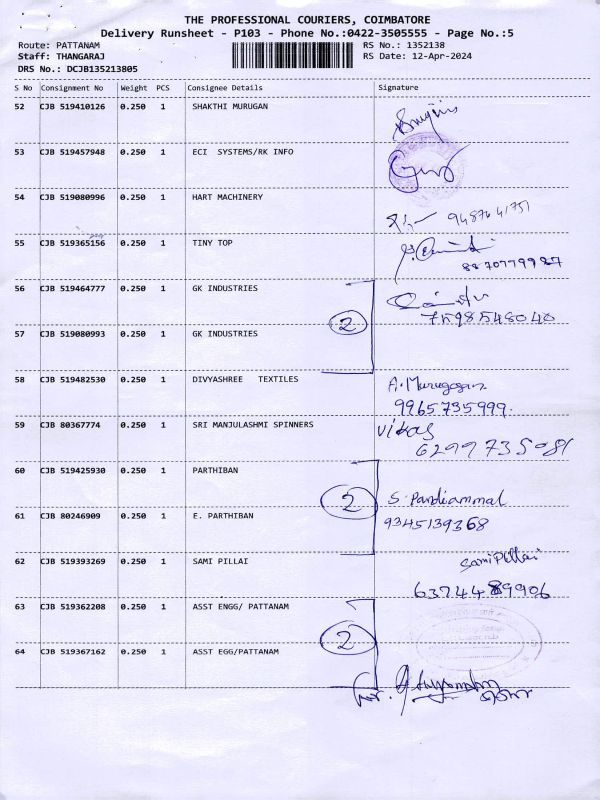 THE PROFESSIONAL COURIERS, COIMBATORE
Delivery Runsheet - P103 - Phone No.:0422-3505555 - Page No.:5
Route: PATTANAM RS No.: 1352138
Staff: THANGARAJ RS Date: 12-Apr-2024
DRS No.: DCJB135213805
S No Consignment No Weight PCS Consignee Details Signature
52 CJB 519410126 0.250 1 SHAKTHI MURUGAN
53 CJB 519457948 0.250 1 ECI SYSTEMS/RK INFO
54 CJB 519080996 0.250 1 HART MACHINERY
9487641751
55 CJB 519365156 0.250 1 TINY TOP
8870779987
56 CJB 519464777 0.250 1 GK INDUSTRIES
2 7598548040
57 CJB 519080993 0.250 1 GK INDUSTRIES
58 CJB 519482530 0.250 1 DIVYASHREE TEXTILES A. Murugesan
9965735999.
59 CJB 80367774 0.250 1 SRI MANJULASHMI SPINNERS Vikas
6299735081
60 CJB 519425930 0.250 1 PARTHIBAN
2 S. Pandiammal
61 CJB 80246909 0.250 1 E. PARTHIBAN 9345139368
62 CJB 519393269 0.250 1 SAMI PILLAI Sami Pillai
6374489906
63 CJB 519362208 0.250 1 ASST ENGG/ PATTANAM
2
64 CJB 519367162 0.250 1 ASST EGG/PATTANAM